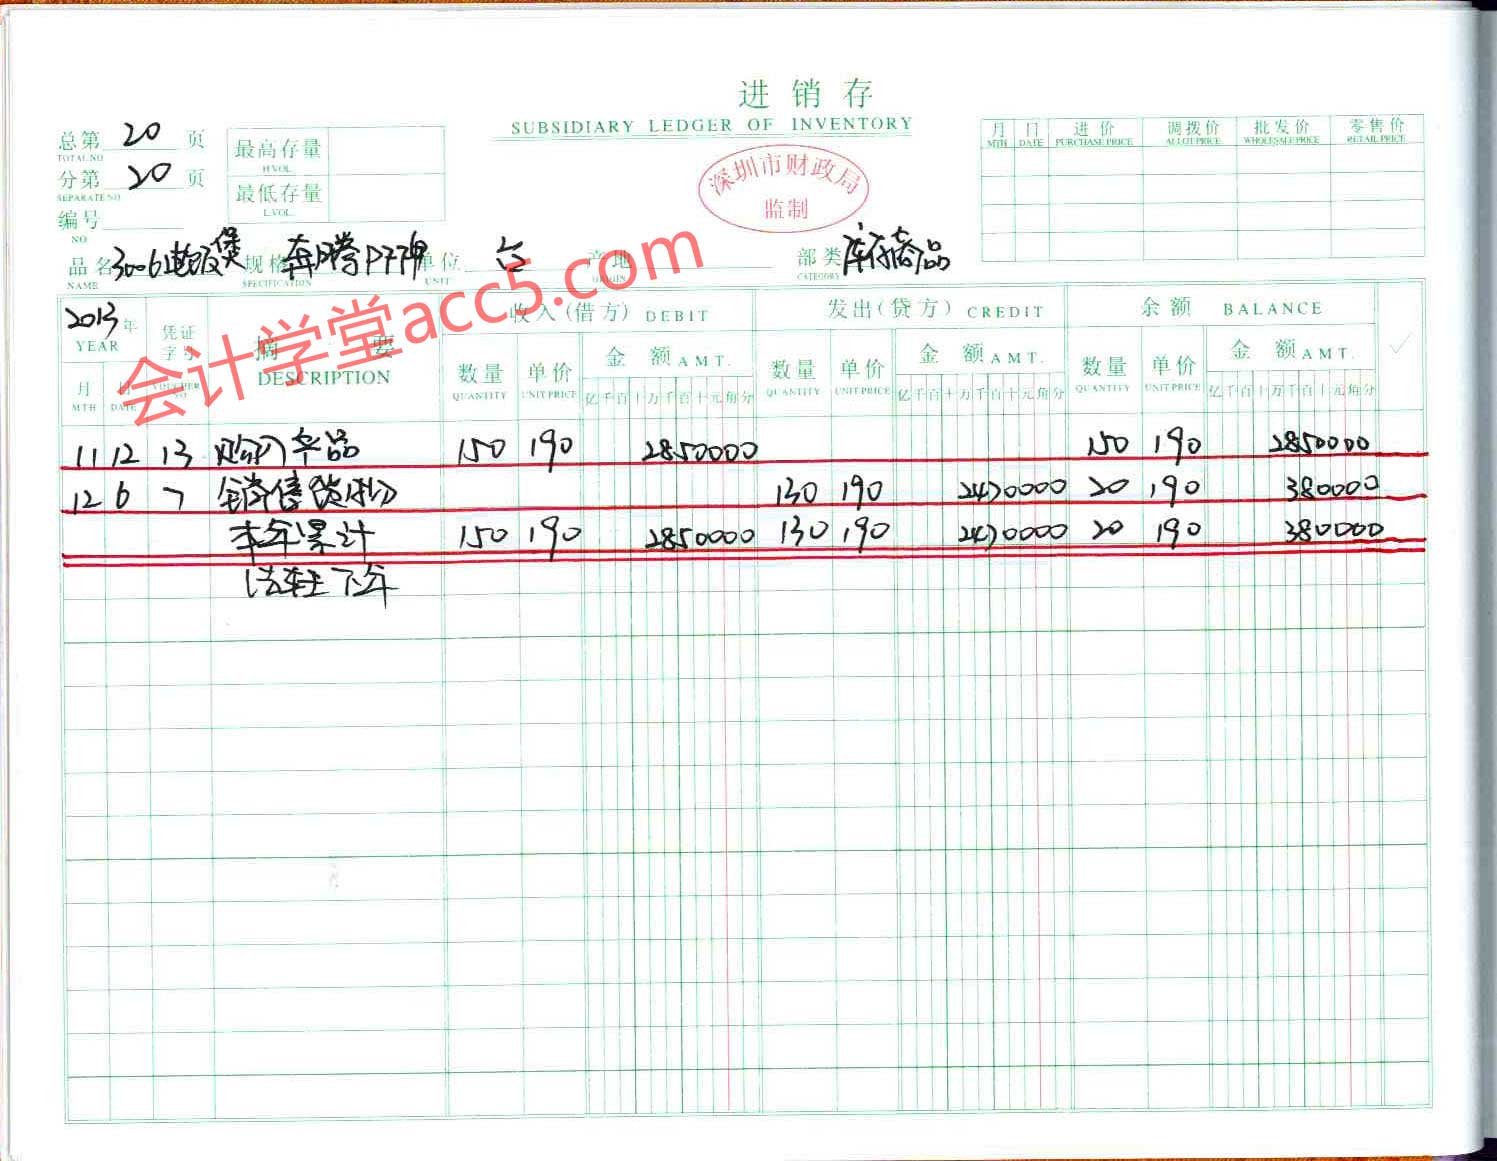 进销存
SUBSIDIARY LEDGER OF INVENTORY
总第 20 页
TOTAL NO
分第 20 页
SEPARATE NO
编号
NO
最高存量
H.VOL.
最低存量
L.VOL.
深圳市财政局
监制
月 日 进价 调拨价 批发价 零售价
MTH DATE PURCHASE PRICE ALLOT PRICE WHOLESALE PRICE RETAIL PRICE
品名 3006 煲 规格 奔腾 单位 台 产地 部类 库存商品
NAME SPECIFICATION UNIT ORIGIN CATEGORY
会计学堂acc5.com
2013 年 凭证 摘要 收入(借方) DEBIT 发出(贷方) CREDIT 余额 BALANCE
YEAR 字号 DESCRIPTION 数量 单价 金额 AMT. 数量 单价 金额 AMT. 数量 单价 金额 AMT.
月 日 VOUCHER NO QUANTITY UNIT PRICE 亿千百十万千百十元角分 QUANTITY UNIT PRICE 亿千百十万千百十元角分 QUANTITY UNIT PRICE 亿千百十万千百十元角分
MTH DATE
11 12 13 购入产品 150 190 2850000 150 190 2850000
12 6 7 销售货物 130 190 2470000 20 190 380000
本年累计 150 190 2850000 130 190 2470000 20 190 380000
结转下年